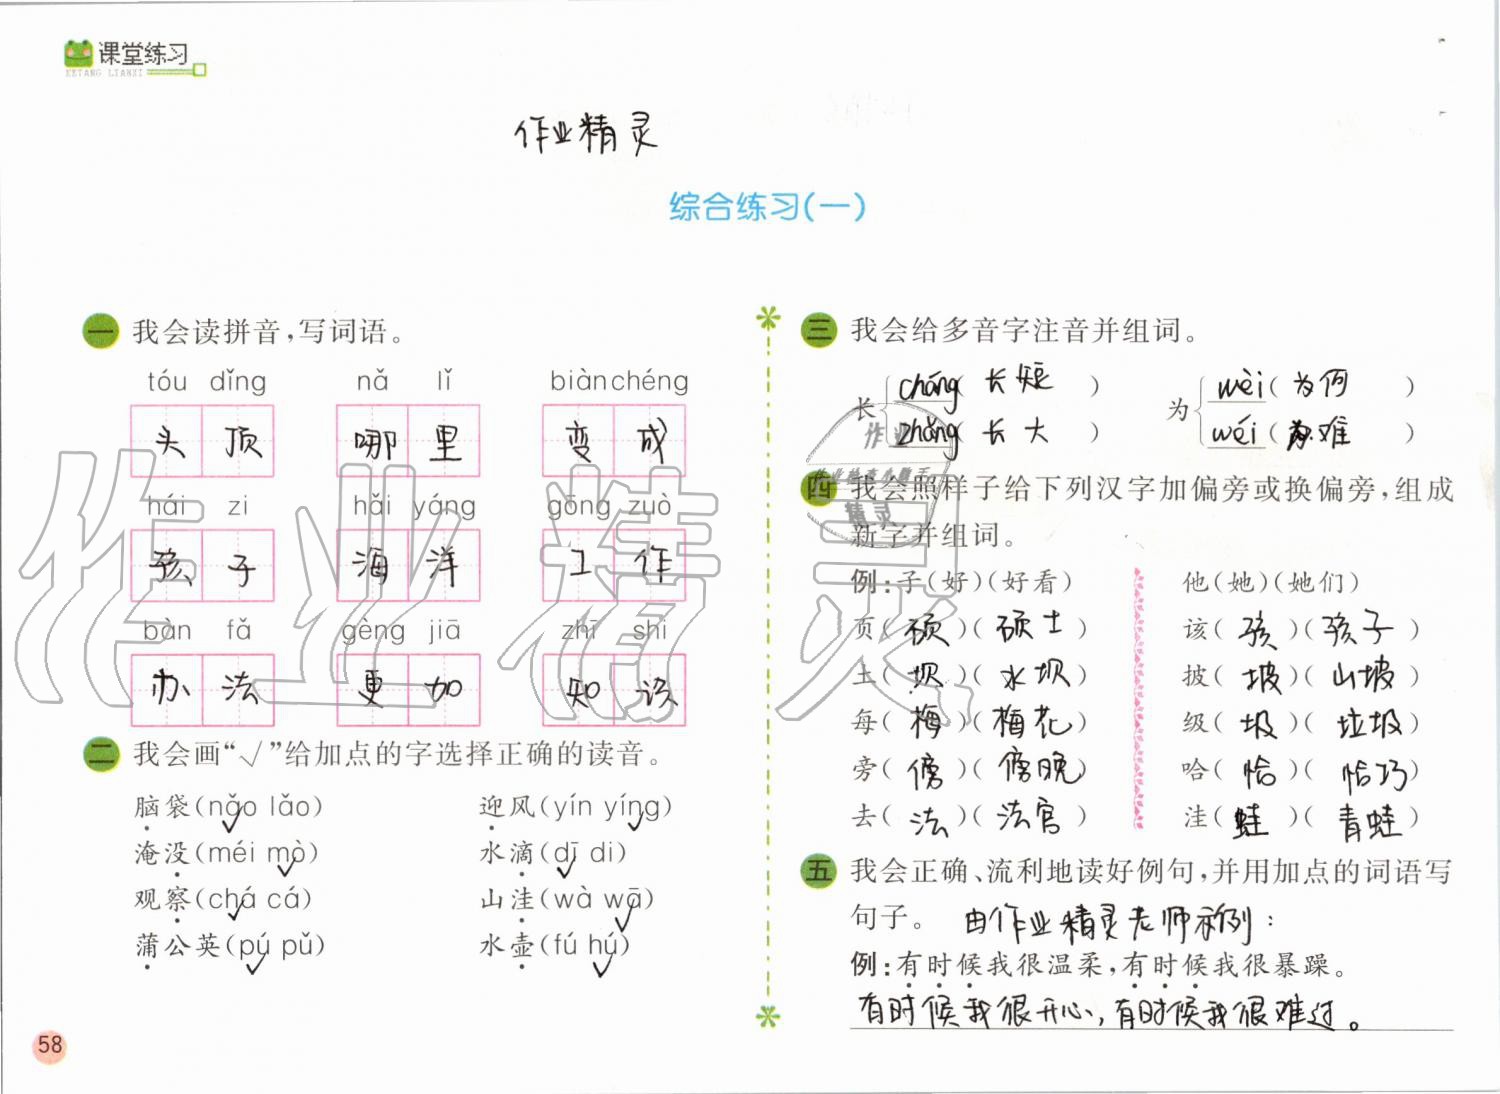 课堂练习
KETANG LIANXI
作业精灵
综合练习(一)
一 我会读拼音,写词语。
tóu dǐng nǎ lǐ biàn chéng
头顶 哪里 变成
hái zi hǎi yáng gōng zuò
孩子 海洋 工作
bàn fǎ gèng jiā zhī shi
办法 更加 知识
二 我会画“√”给加点的字选择正确的读音。
脑袋(nǎo lǎo) 迎风(yín yíng)
淹没(méi mò) 水滴(dī di)
观察(chá cá) 山洼(wà wā)
蒲公英(pú pǔ) 水壶(fú hú)
58
三 我会给多音字注音并组词。
长 cháng(长短) 为 wèi(为何)
zhǎng(长大) wéi(为难)
四 我会照样子给下列汉字加偏旁或换偏旁,组成
新字并组词。
例:子(好)(好看) 他(她)(她们)
页(硕)(硕士) 该(孩)(孩子)
土(坝)(水坝) 披(坡)(山坡)
每(梅)(梅花) 级(圾)(垃圾)
旁(傍)(傍晚) 哈(恰)(恰巧)
去(法)(法官) 洼(蛙)(青蛙)
五 我会正确、流利地读好例句,并用加点的词语写
句子。 由作业精灵老师示例:
例:有时候我很温柔,有时候我很暴躁。
有时候我很开心,有时候我很难过。
作业精灵
作业
作业检查小助手
精灵